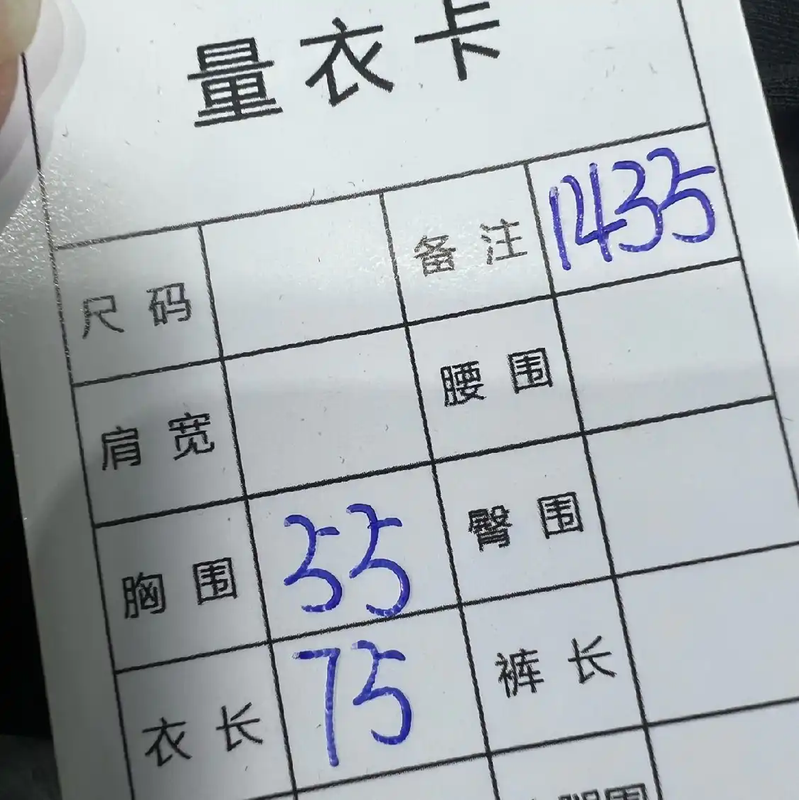 量衣卡
尺码 备注 1435
肩宽 腰围
胸围 55 臀围
衣长 75 裤长
腿围